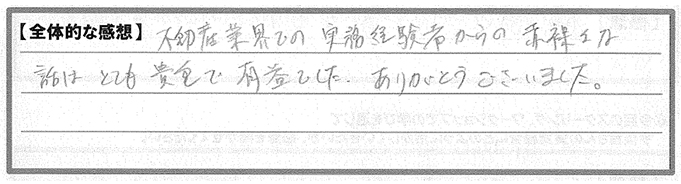 【全体的な感想】 不動産業界での実務経験者からの赤裸々な
話は とても貴重で有益でした。ありがとうございました。